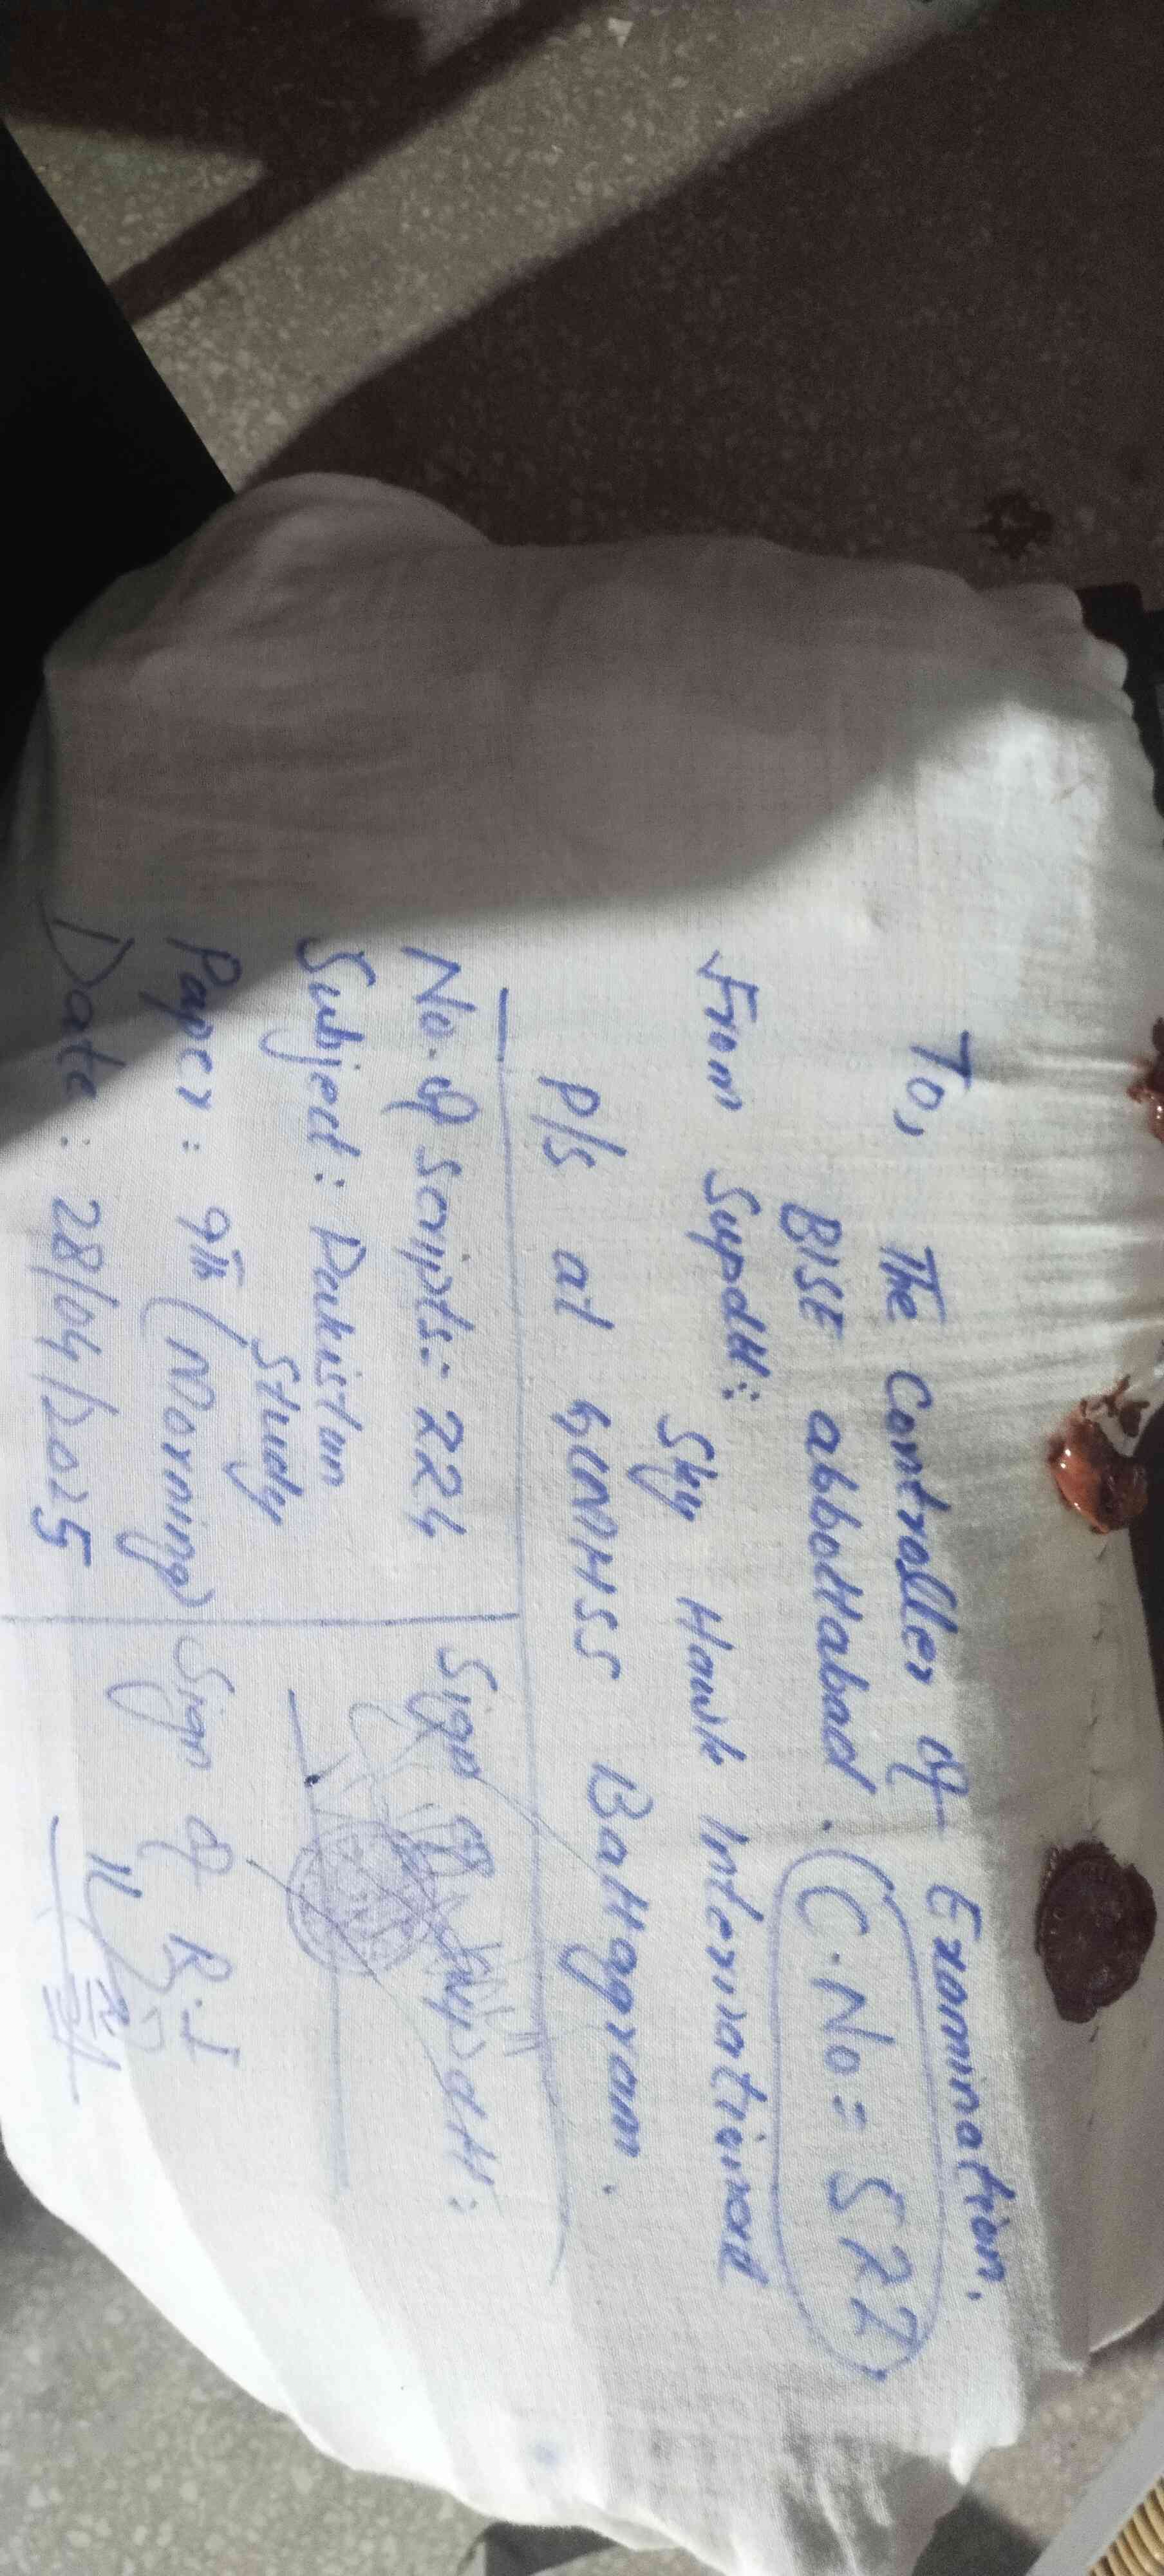 To, The Controller of Examination.
BISE abbottabad. C.No = 527
From Supdtt:
Sky Hawk International
P/S at GCMHSS Battagram.
No. of Scripts: 224
Subject: Pakistan
Study
Paper: 9th (Morning)
Date: 28/04/2025
Sign of Supdtt:
Sign of R.I